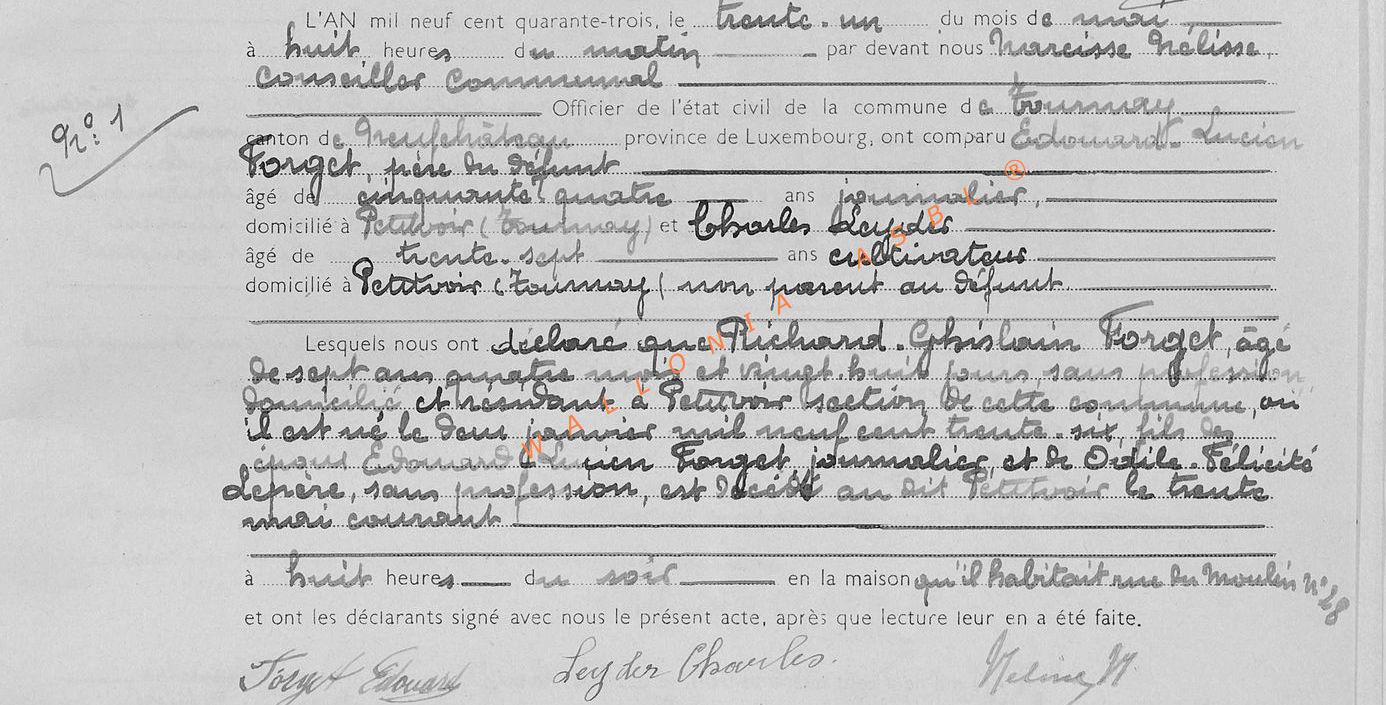 L'AN mil neuf cent quarante-trois, le trente-un du mois de mai
à huit heures du matin par devant nous Narcisse Nélisse,
Conseiller Communal
Officier de l'état civil de la commune de Tournay
N°: 1
canton de Neufchâteau province de Luxembourg, ont comparu Edouard-Lucien
Forget, père du défunt
âgé de cinquante quatre ans journalier,
domicilié à Petitvoir (Tournay) et Charles Leyder
âgé de trente-sept ans cultivateur
domicilié à Petitvoir (Tournay) non parent au défunt
Lesquels nous ont déclaré que Richard-Ghislain Forget, âgé
de sept ans quatre mois et vingt-huit jours, sans profession
domicilié et résidant à Petitvoir section de cette commune, où
il est né le deux janvier mil neuf cent trente-six, fils des
époux Edouard Lucien Forget, journalier, et de Odile-Félicité
Lepère, sans profession, est décédé au dit Petitvoir le trente
mai courant
à huit heures du soir en la maison qu'il habitait rue du Moulin n°
et ont les déclarants signé avec nous le présent acte, après que lecture leur en a été faite.
Forget Edouard Leyder Charles. N
WALLONIA ASBL ®